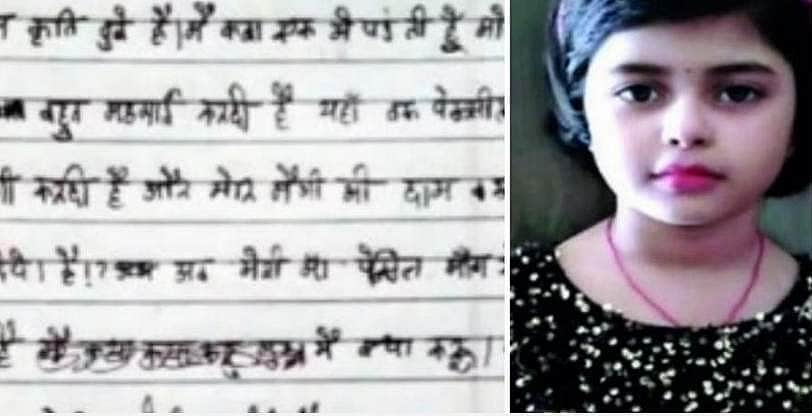 कृति दुबे है। मैं कक्षा एक में पड़ती हूँ मो
बहुत महगाई करदी है यहाँ तक पेन्सील
करदी है और मेरि मैगी भी दाम
है। अब मेरी मा पेंसिल माँग
मैं क्या करू।